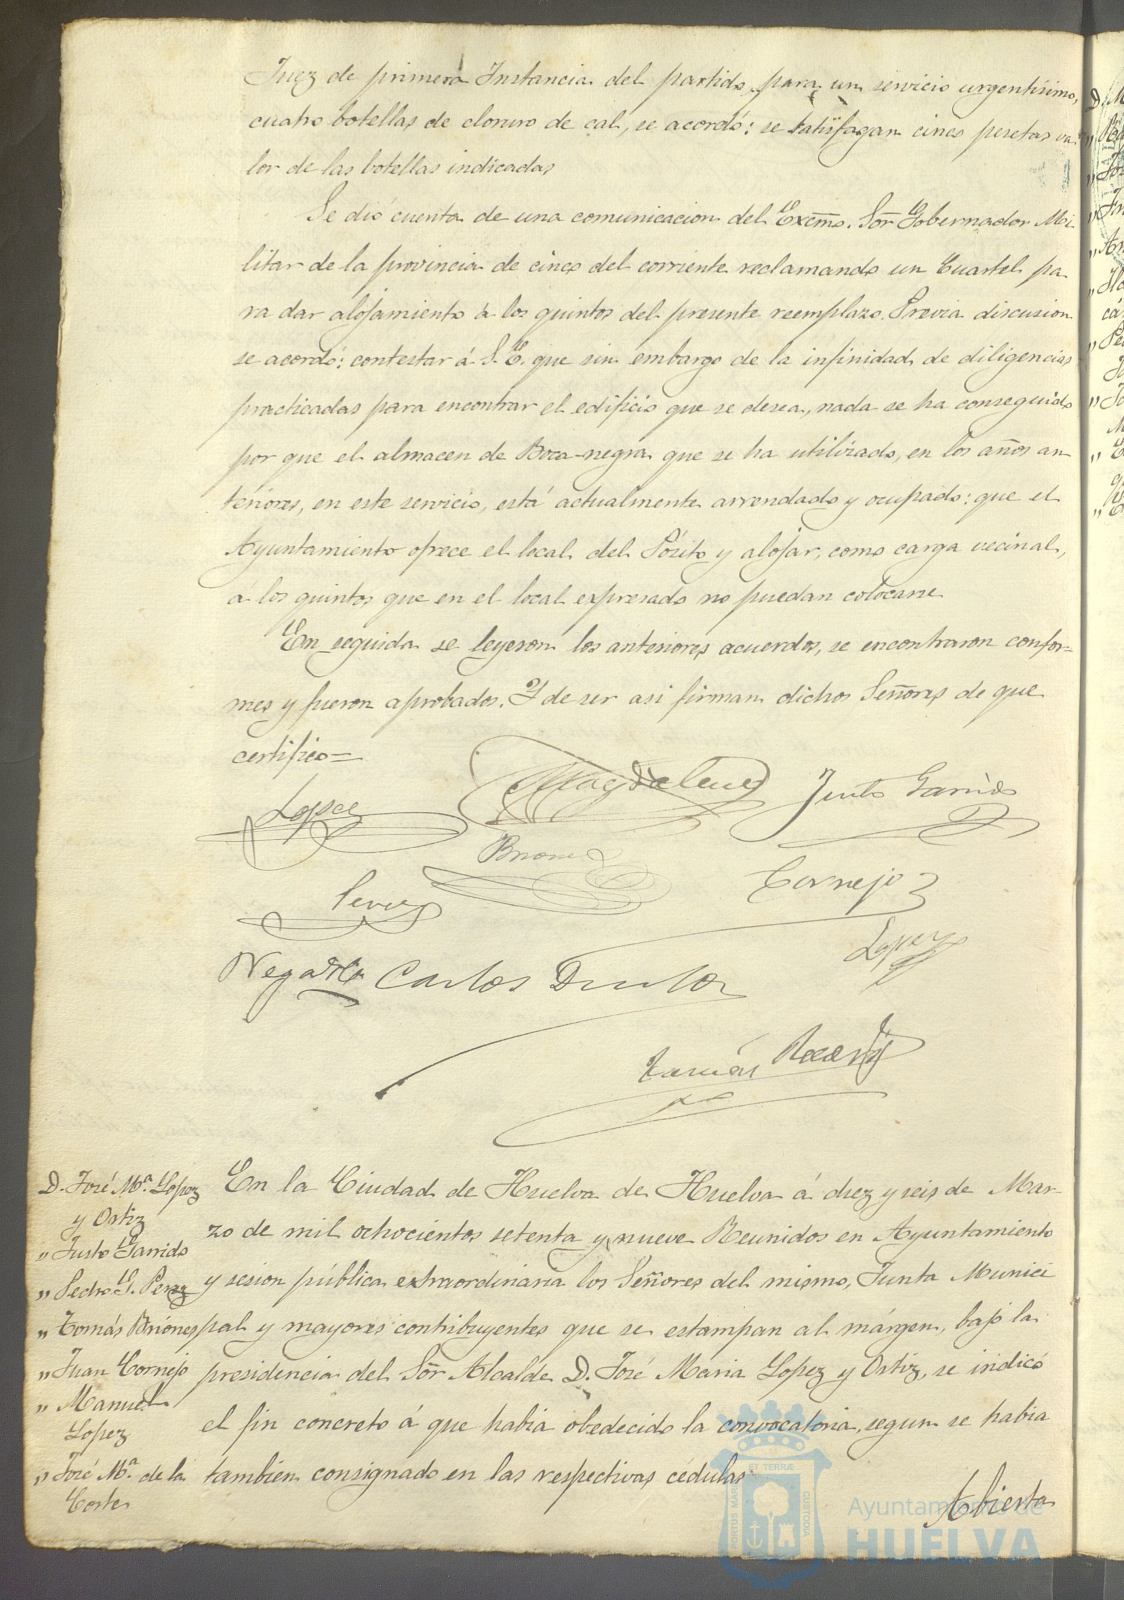 Juez de primera Instancia del partido para un servicio urgentísimo,
cuatro botellas de cloruro de cal, se acordó: se satisfagan cinco pesetas va-
lor de las botellas indicadas
Se dió cuenta de una comunicacion del Excmo. Sor Gobernador Mi-
litar de la provincia de cinco del corriente reclamando un Cuartel pa-
ra dar alojamiento á los quintos del presente reemplazo. Previa discusion
se acordó: contestar á S. E. que sin embargo de la infinidad de diligencias
practicadas para encontrar el edificio que se desea, nada se ha conseguido
por que el almacen de Boca-negra que se ha utilizado, en los años an-
teriores, en este servicio, está actualmente arrendado y ocupado: que el
Ayuntamiento ofrece el local del Pósito y alojar, como carga vecinal,
á los quintos que en el local expresado no puedan colocarse
En seguida se leyeron los anteriores acuerdos, se encontraron confor=
mes y fueron aprobados. Y de ser asi firman dichos Señores de que
certifico=
Lopez
Magdalena
Justo Garrido
Briones
Perez
Cornejo
Lopez
Carlos
Tomás
D. José Mª Lopez
y Ortiz
" Justo Garrido
" Pedro G. Perez
" Tomás Briones
" Juan Cornejo
" Manuel
Lopez
" José Mª de la
Corte
En la Ciudad de Huelva de Huelva á diez y seis de Mar-
zo de mil ochocientos setenta y nueve Reunidos en Ayuntamiento
y sesion pública extraordinaria los Señores del mismo, Junta Munici
pal y mayores contribuyentes que se estampan al márgen, bajo la
presidencia del Sor Alcalde D. José Maria Lopez y Ortiz, se indicó
el fin concreto á que habia obedecido la convocatoria, segun se habia
tambien consignado en las respectivas cédulas
Abierta
PORTUS MARIS ET TERRÆ CUSTODIA
Ayuntamiento de
HUELVA